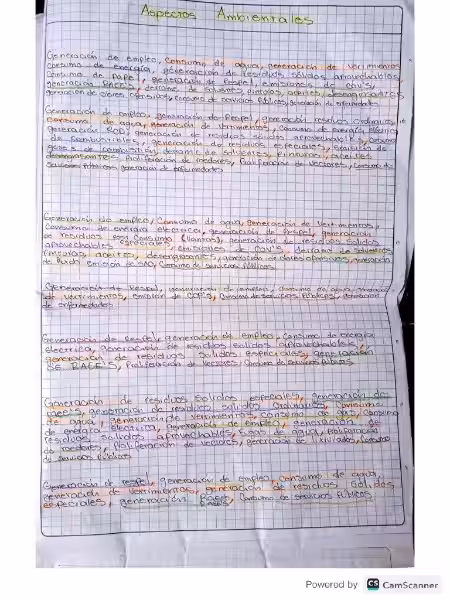 Aspectos Ambientales
Generación de empleo, consumo de agua, generación de vertimientos
consumo de energía, generación de residuos sólidos aprovechables,
consumo de papel, generación de Respel, emisiones de
generación RAEES, derrame de solventes, pinturas, aceites, desengrasantes,
generación de olores ofensivos, consumo de servicios Públicos, generación de enfermedades
Generación de empleo, generación de Respel, generación residuos ordinarios,
consumo de agua, generación de vertimientos, consumo de energía eléctrica
generación RCD, generación de residuos sólidos aprovechables, consumo
de combustibles, generación de residuos especiales, emisión de
gases de combustión, derrame de solventes, Pinturas, aceites
desengrasantes, Proliferación de roedores, Proliferación de vectores, consumo de
servicios Públicos, generación de enfermedades
Generación de empleo, Consumo de agua, Generación de vertimientos,
Consumo de energía electrica, generación de Respel, generación
de residuos post consumo (llantas), generación de residuos sólidos
aprovechables especiales, emisiones de derrame de solventes
Pinturas, aceites, desengrasantes, generación de olores ofensivos, generación
de Ruido, emisión de Consumo de servicios Públicos
Generación de Respel, generación de empleo, consumo de agua,
de vertimientos, emisión de Consumo de servicios Públicos, generación
de enfermedades
Generación de Respel, generación de empleo, Consumo de energía
electrica, generación de residuos sólidos aprovechables,
generación de residuos solidos especiales, generación
DE RAEE'S, Proliferación de vectores, Consumo de servicios Públicos
Generación de residuos sólidos especiales, generación de
raee's, generación de residuos solidos ordinarios, Consumo
de agua, generación de vertimientos, consumo de gas, Consumo
de energía electrica, generación de empleo, generación de
residuos solidos aprovechables, de agua, Proliferación
de roedores, Proliferación de vectores, generación de lixiviados, Consumo
de servicios Públicos
Generación de respel, generación de empleo, consumo de agua,
generación de vertimientos, generación de residuos solidos
especiales, generación Raees, Consumo de servicios Públicos
Powered by CS CamScanner